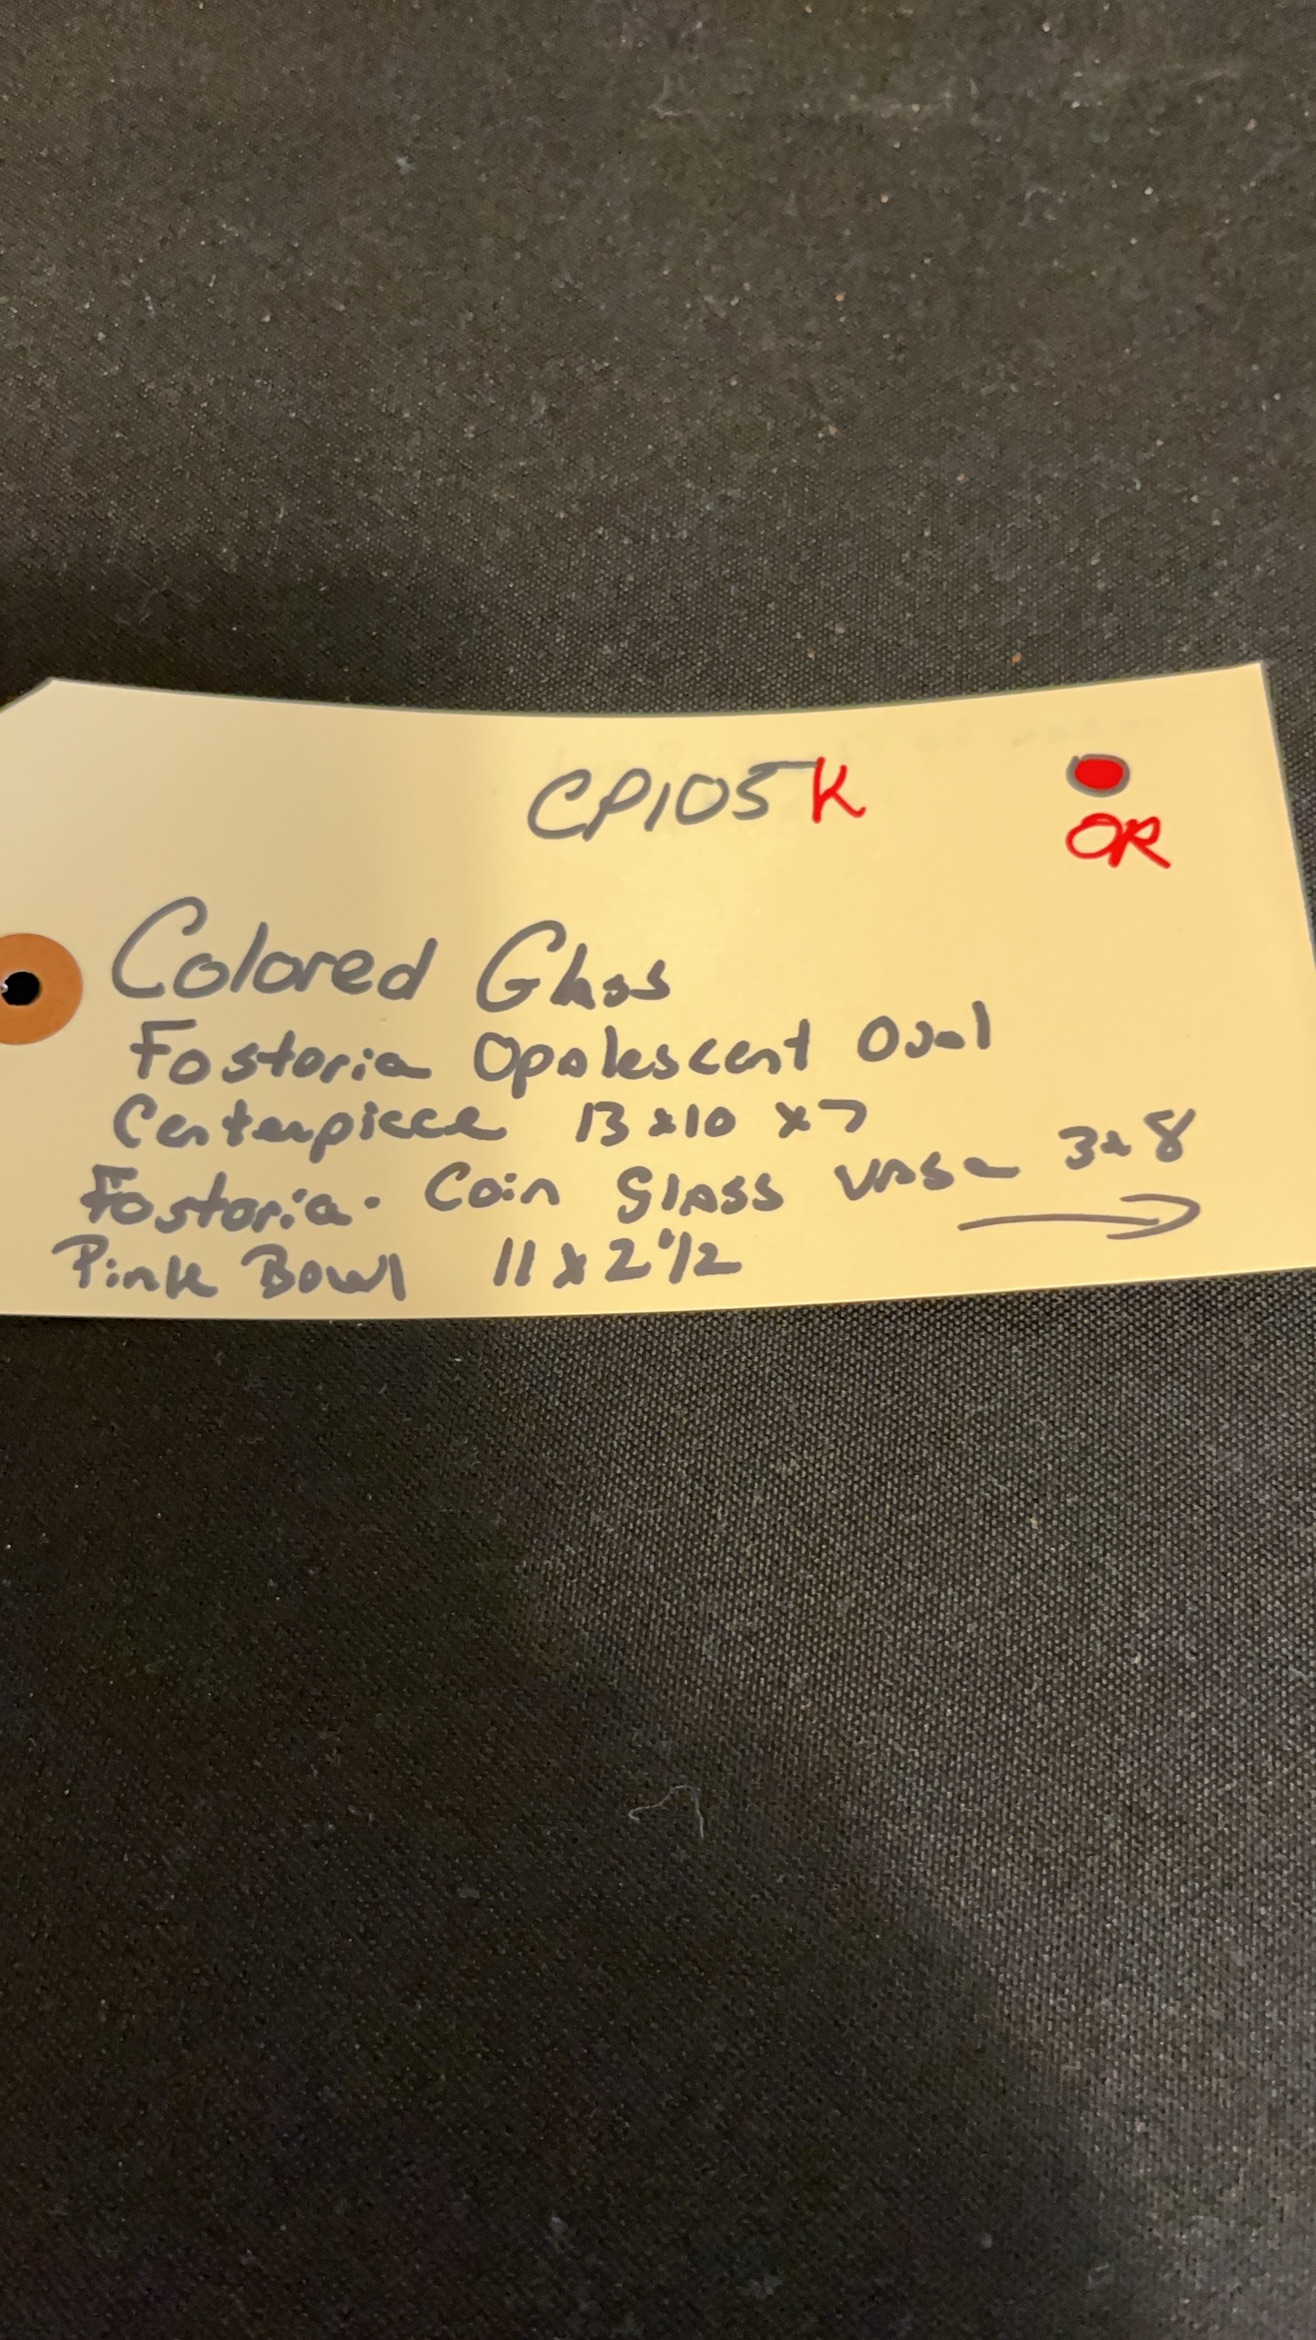 CP105K
OR
Colored Glass
Fostoria Opalescent Oval
Centerpiece 13x10 x7
Fostoria. Coin Glass Vase 3x8
Pink Bowl 11x2 1/2